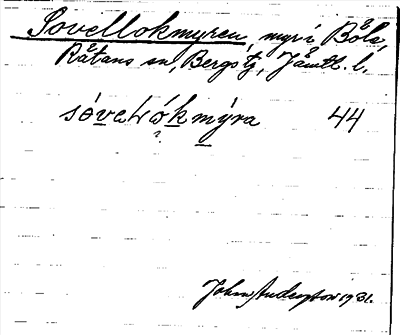 Sovellokmyren, myr i Böle,
Rätans sn, Bergs tg, Jämtl. l.
sóvelók mýra 44
?
John Anderson 1931.